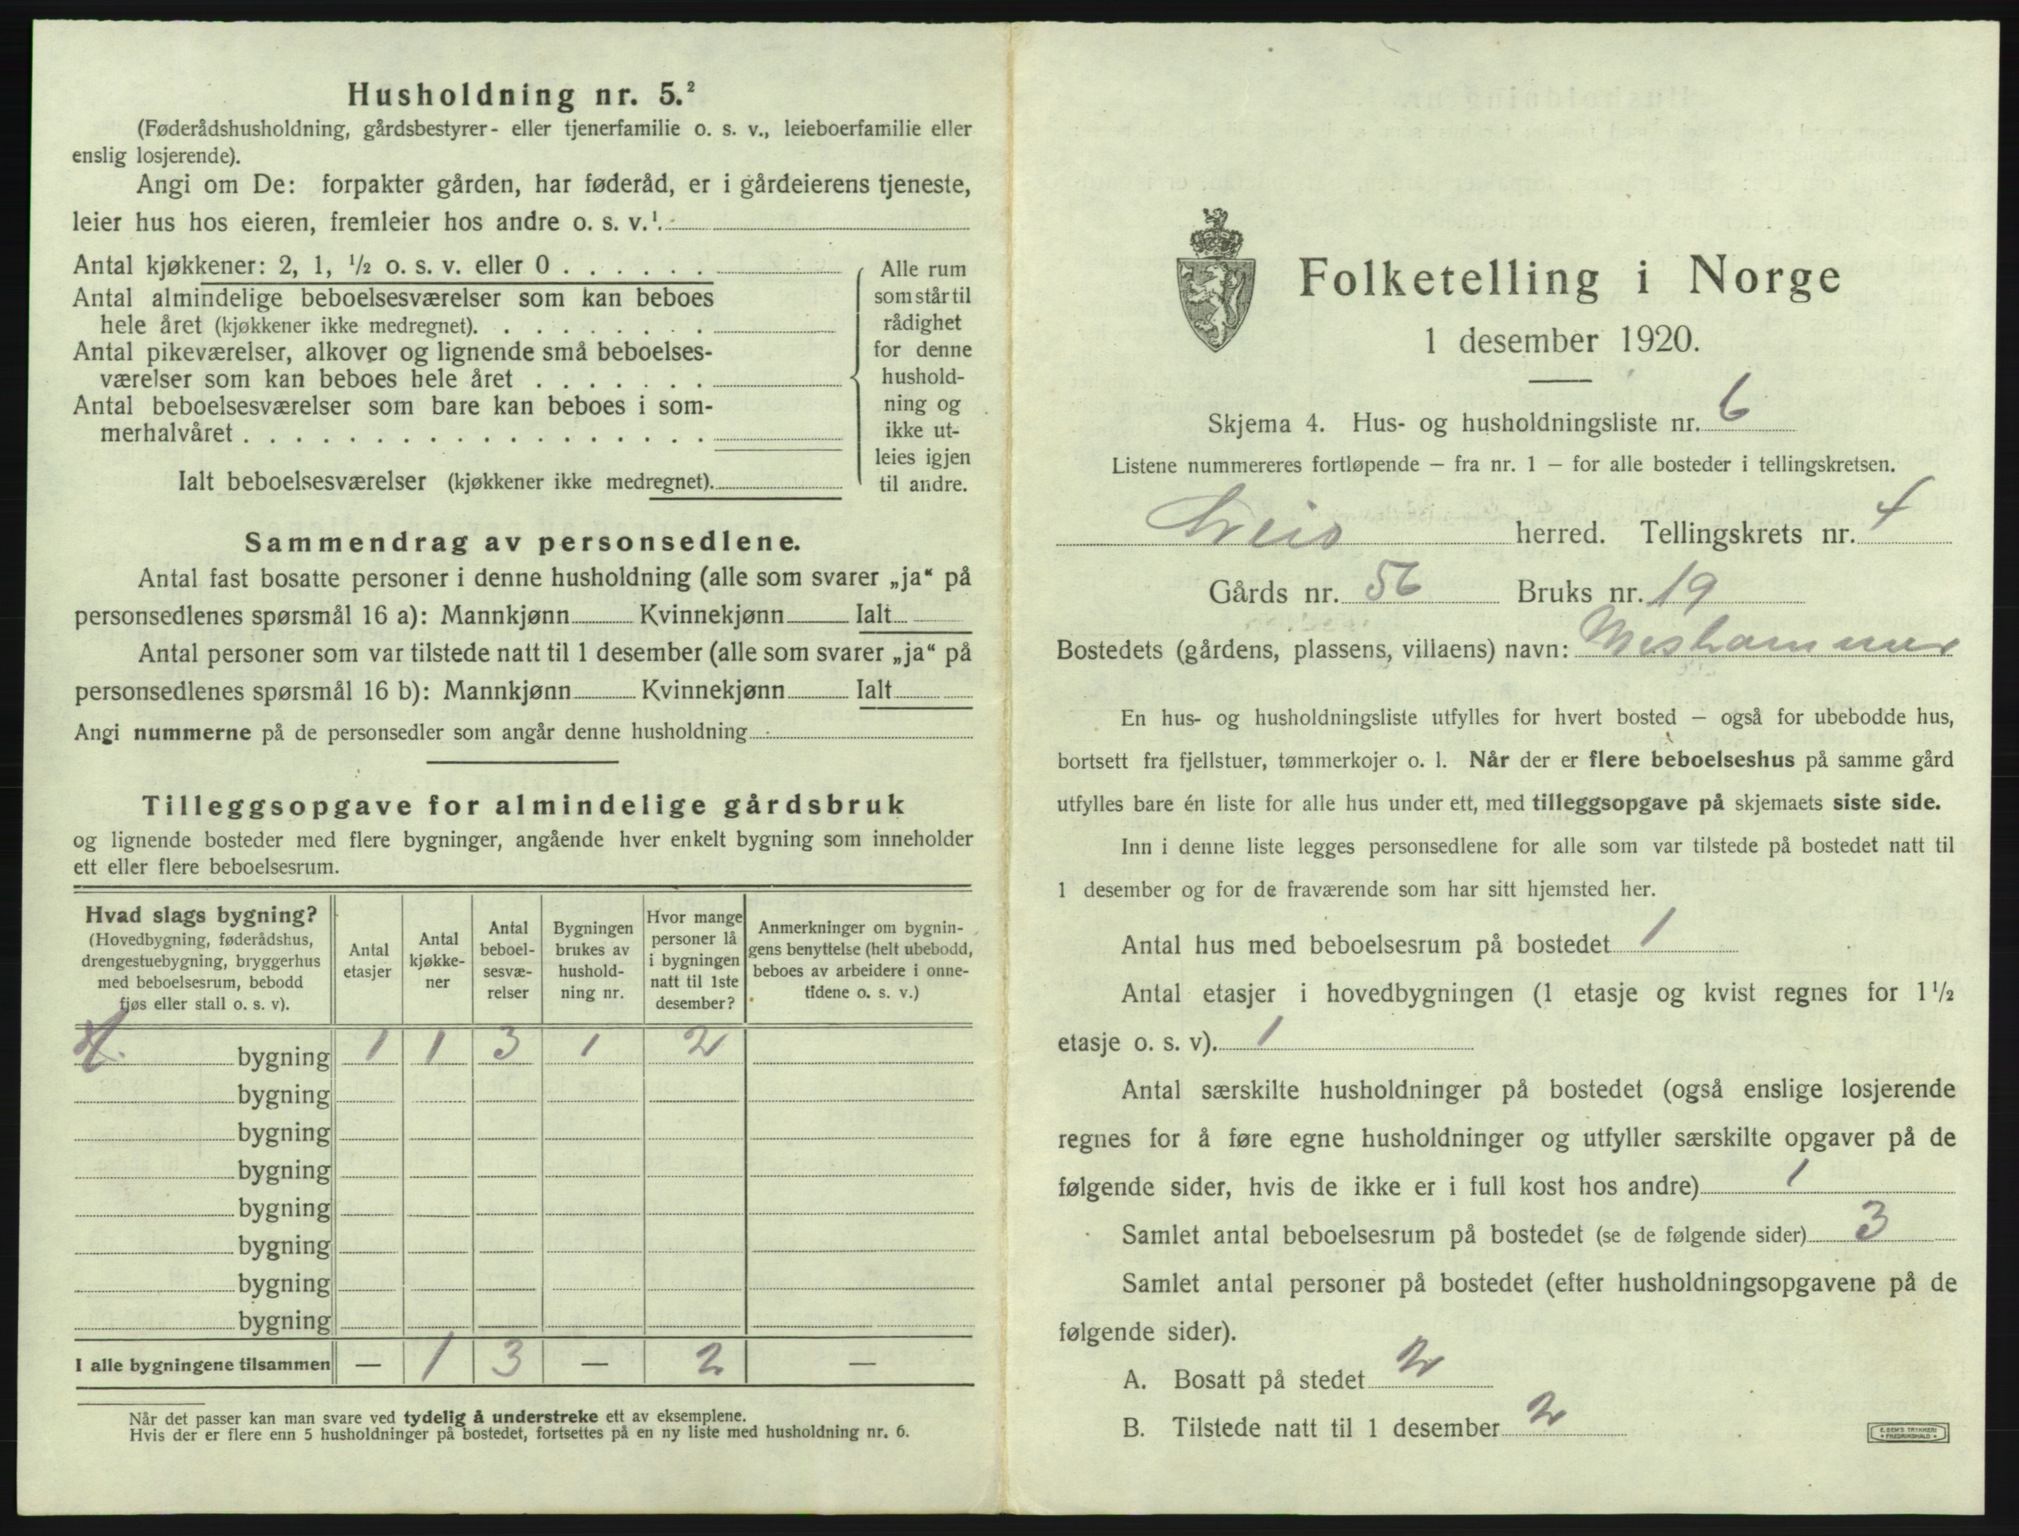 Husholdning nr. 5.²
(Føderådshusholdning, gårdsbestyrer- eller tjenerfamilie o. s. v., leieboerfamilie eller
enslig losjerende).
Angi om De: forpakter gården, har føderåd, er i gårdeierens tjeneste,
leier hus hos eieren, fremleier hos andre o. s. v.¹.
Antal kjøkkener: 2, 1, ½ o. s. v. eller 0 . . . . . .
Antal almindelige beboelsesværelser som kan beboes
hele året (kjøkkener ikke medregnet). . . . . . . . .
Antal pikeværelser, alkover og lignende små beboelses-
værelser som kan beboes hele året . . . . . . .
Antal beboelsesværelser som bare kan beboes i som-
merhalvåret . . . . . . . . . . . . . . . . . .
Ialt beboelsesværelser (kjøkkener ikke medregnet).
Alle rum
som står til
rådighet
for denne
hushold-
ning og
ikke ut-
leies igjen
til andre.
Sammendrag av personsedlene.
Antal fast bosatte personer i denne husholdning (alle som svarer „ja“ på
personsedlenes spørsmål 16 a): Mannkjønn Kvinnekjønn Ialt
Antal personer som var tilstede natt til 1 desember (alle som svarer „ja“ på
personsedlenes spørsmål 16 b): Mannkjønn Kvinnekjønn Ialt
Angi nummerne på de personsedler som angår denne husholdning
Tilleggsopgave for almindelige gårdsbruk
og lignende bosteder med flere bygninger, angående hver enkelt bygning som inneholder
ett eller flere beboelsesrum.
Hvad slags bygning?
(Hovedbygning, føderådshus,
drengestuebygning, bryggerhus
med beboelsesrum, bebodd
fjøs eller stall o. s. v).
Antal
etasjer
Antal
kjøkke-
ner
Antal
beboel-
sesvæ-
relser
Bygningen
brukes av
hushold-
ning nr.
Hvor mange
personer lå
i bygningen
natt til 1ste
desember?
Anmerkninger om bygnin-
gens benyttelse (helt ubebodd,
beboes av arbeidere i onne-
tidene o. s. v.)
H. bygning 1 1 3 1 2
bygning
bygning
bygning
bygning
bygning
bygning
bygning
I alle bygningene tilsammen — 1 3 — 2 —
Når det passer kan man svare ved tydelig å understreke ett av eksemplene.
Hvis der er flere enn 5 husholdninger på bostedet, fortsettes på en ny liste med husholdning nr. 6.
Folketelling i Norge
1 desember 1920.
Skjema 4. Hus- og husholdningsliste nr. 6
Listene nummereres fortløpende – fra nr. 1 – for alle bosteder i tellingskretsen.
herred. Tellingskrets nr. 4
Gårds nr. 56 Bruks nr. 19
Bostedets (gårdens, plassens, villaens) navn:
En hus- og husholdningsliste utfylles for hvert bosted – også for ubebodde hus,
bortsett fra fjellstuer, tømmerkojer o. l. Når der er flere beboelseshus på samme gård
utfylles bare én liste for alle hus under ett, med tilleggsopgave på skjemaets siste side.
Inn i denne liste legges personsedlene for alle som var tilstede på bostedet natt til
1 desember og for de fraværende som har sitt hjemsted her.
Antal hus med beboelsesrum på bostedet 1
Antal etasjer i hovedbygningen (1 etasje og kvist regnes for 1½
etasje o. s. v). 1
Antal særskilte husholdninger på bostedet (også enslige losjerende
regnes for å føre egne husholdninger og utfyller særskilte opgaver på de
følgende sider, hvis de ikke er i full kost hos andre) 1
Samlet antal beboelsesrum på bostedet (se de følgende sider) 3
Samlet antal personer på bostedet (efter husholdningsopgavene på de
følgende sider).
A. Bosatt på stedet 2
B. Tilstede natt til 1 desember 2
E. SEM'S TRYKKERI
• FREDRIKSHALD •